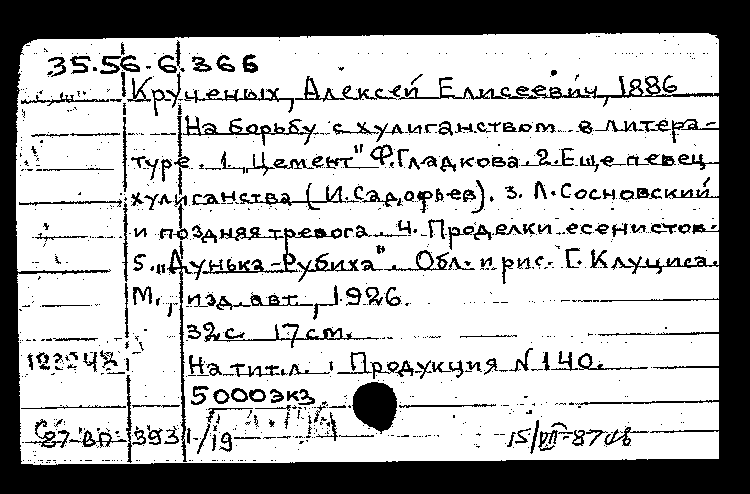 35.56.6.366
Крученых, Алексей Елисеевич, 1886
На борьбу с хулиганством в литера-
туре. 1. „Цемент" Ф.Гладкова. 2. Еще певец
хулиганства (И.Садофьев). 3. Л.Сосновский
и поздняя тревога. 4. Проделки есенистов.
5. „Дунька-Рубиха". Обл. и рис. Г. Клуциса.
М., изд. авт., 1926.
32с. 17см.
123248
На тит.л.: Продукция N 140.
5000экз
87-ВП-3931/19
15/VII-87